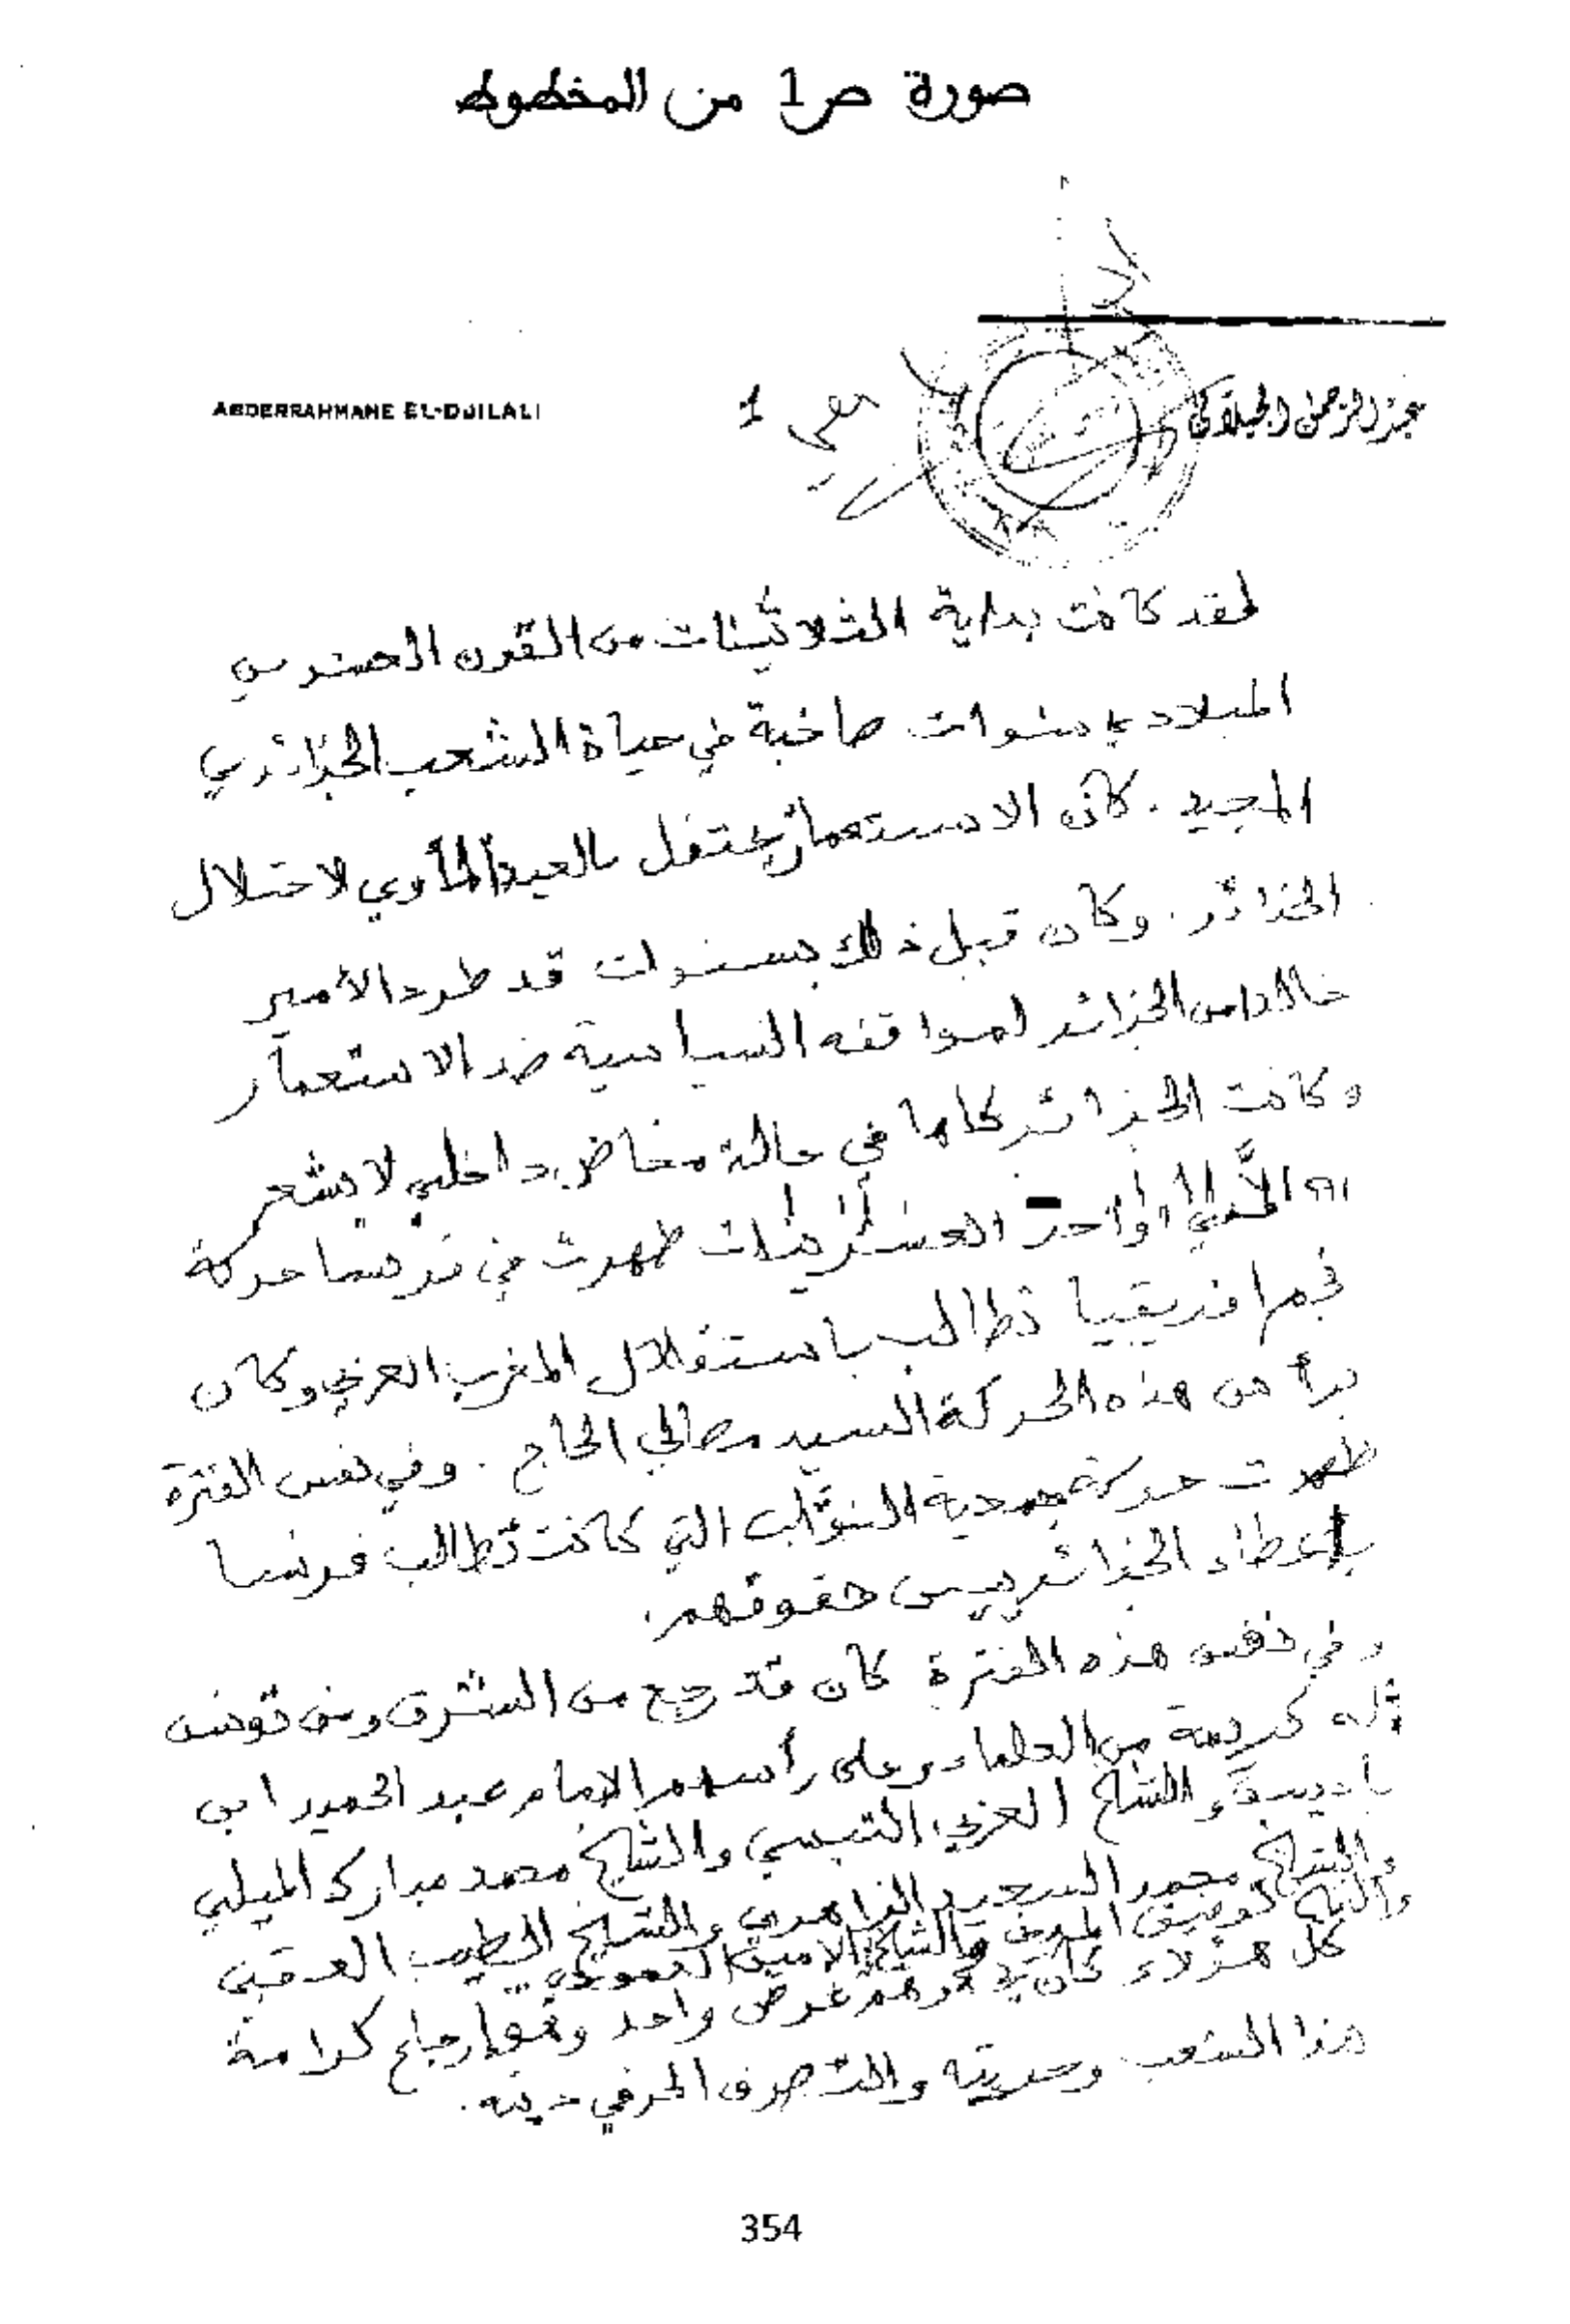 صورة ص1 من المخطوط
ABDERRAHMANE EL-DJILALI
1
عبد الرحمن الجيلالي
لقد كانت بداية الثلاثينات من القرن العشرين
الميلادي سنوات صاخبة في حياة الشعب الجزائري
المجيد. كان الاستعمار يحتفل بالعيد المأوي لاحتلال
الجزائر. وكان قبل ذلك بسنوات قد طرد الأمير
خالد من الجزائر لمواقفه السياسية ضد الاستعمار
وكانت الجزائر كلها في حالة مخاض داخلي لا يشعر
العشرينات ظهرت في فرنسا حركة
نجم افريقيا تطالب باستقلال المغرب العربي وكان
يرأس هذه الحركة السيد مصالي الحاج. وفي نفس الفترة
ظهرت حركة جمعية النواب التي كانت تطالب فرنسا
بإعطاء الجزائريين حقوقهم.
وفي نفس هذه الفترة كان قد رجع من الشرق ومن تونس
ثلة كريمة من العلماء وعلى رأسهم الإمام عبد الحميد ابن
باديس والشيخ العربي التبسي والشيخ محمد مبارك الميلي
والشيخ محمد السعيد الزاهري والشيخ الطيب العقبي
والشيخ توفيق المدني والشيخ الامين العمودي
كل هؤلاء كان غرض واحد وهو إرجاع كرامة
هذا الشعب وحريته والتصرف الحر في دينه.
354